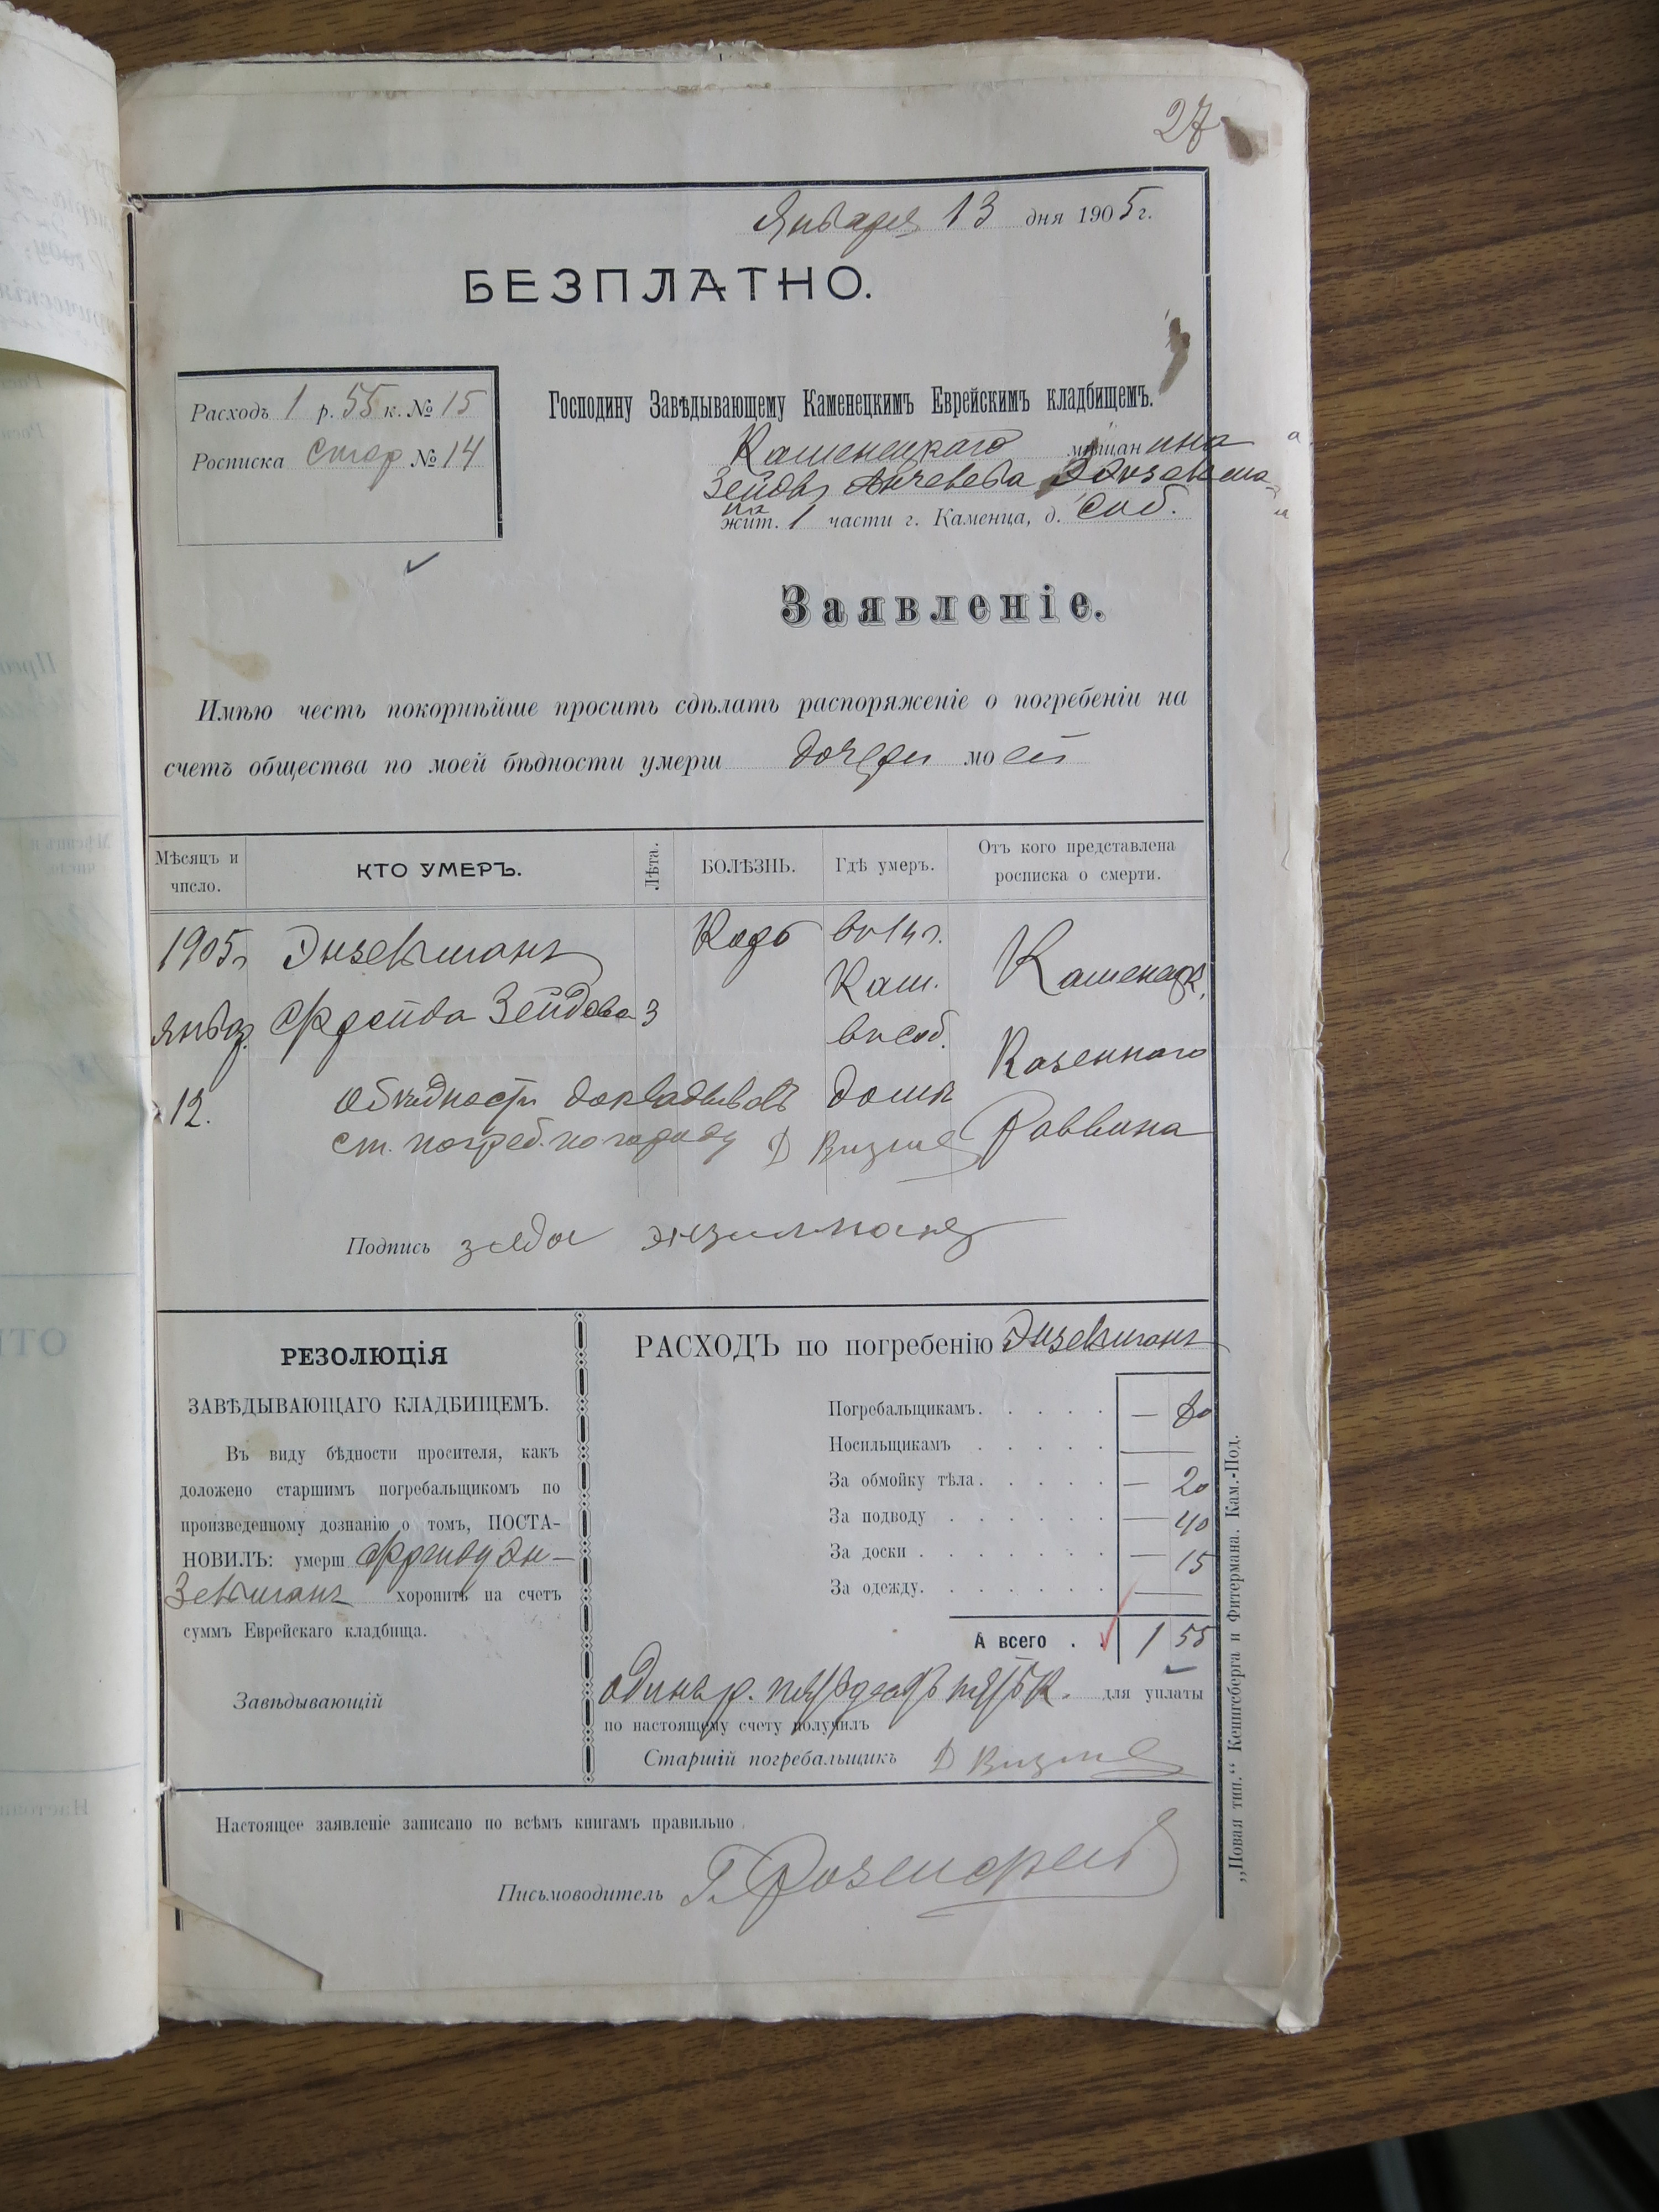 27
Января 13 дня 1905 г.
БЕЗПЛАТНО.
Расходъ 1 р. 55 к. № 15
Росписка стар № 14
Господину Завѣдывающему Каменецкимъ Еврейскимъ кладбищемъ.
Каменецкаго мѣщанина
Зейдъ
жит. 1 части г. Каменца, д. соб.
Заявленіе.
Имѣю честь покорнѣйше просить сдѣлать распоряженіе о погребеніи на
счетъ общества по моей бѣдности умерш дочери моей
Мѣсяцъ и число.
КТО УМЕРЪ.
Лѣта.
БОЛѢЗНЬ.
Гдѣ умеръ.
Отъ кого представлена росписка о смерти.
1905 г Энзельманъ Корь въ 1 ч г. Каменецк.
январ. Фрейда Зейдова 3 Кам. Казеннаго
12. въ соб. домѣ Раввина
о бѣдности докладывалъ
ст. погреб. по городу
Подпись зейда энзилманъ
РЕЗОЛЮЦІЯ
ЗАВѢДЫВАЮЩАГО КЛАДБИЩЕМЪ.
Въ виду бѣдности просителя, какъ
доложено старшимъ погребальщикомъ по
произведенному дознанію о томъ, ПОСТА-
НОВИЛЪ: умерш Фрейду Эн-
зельманъ хоронить на счетъ
суммъ Еврейскаго кладбища.
Завѣдывающій
РАСХОДЪ по погребенію Энзельманъ
Погребальщикамъ. . . . . — 80
Носильщикамъ . . . . . —
За обмойку тѣла. . . . . — 20
За подводу . . . . . . — 40
За доски . . . . . . . — 15
За одежду. . . . . . . —
А всего . . 1 55
одинъ р. пятьдесятъ пять к. для уплаты
по настоящему счету получилъ
Старшій погребальщикъ
Настоящее заявленіе записано по всѣмъ книгамъ правильно
Письмоводитель Г. Розенфельд
„Новая тип.“ Кенигсберга и Фитермана. Кам.-Под.